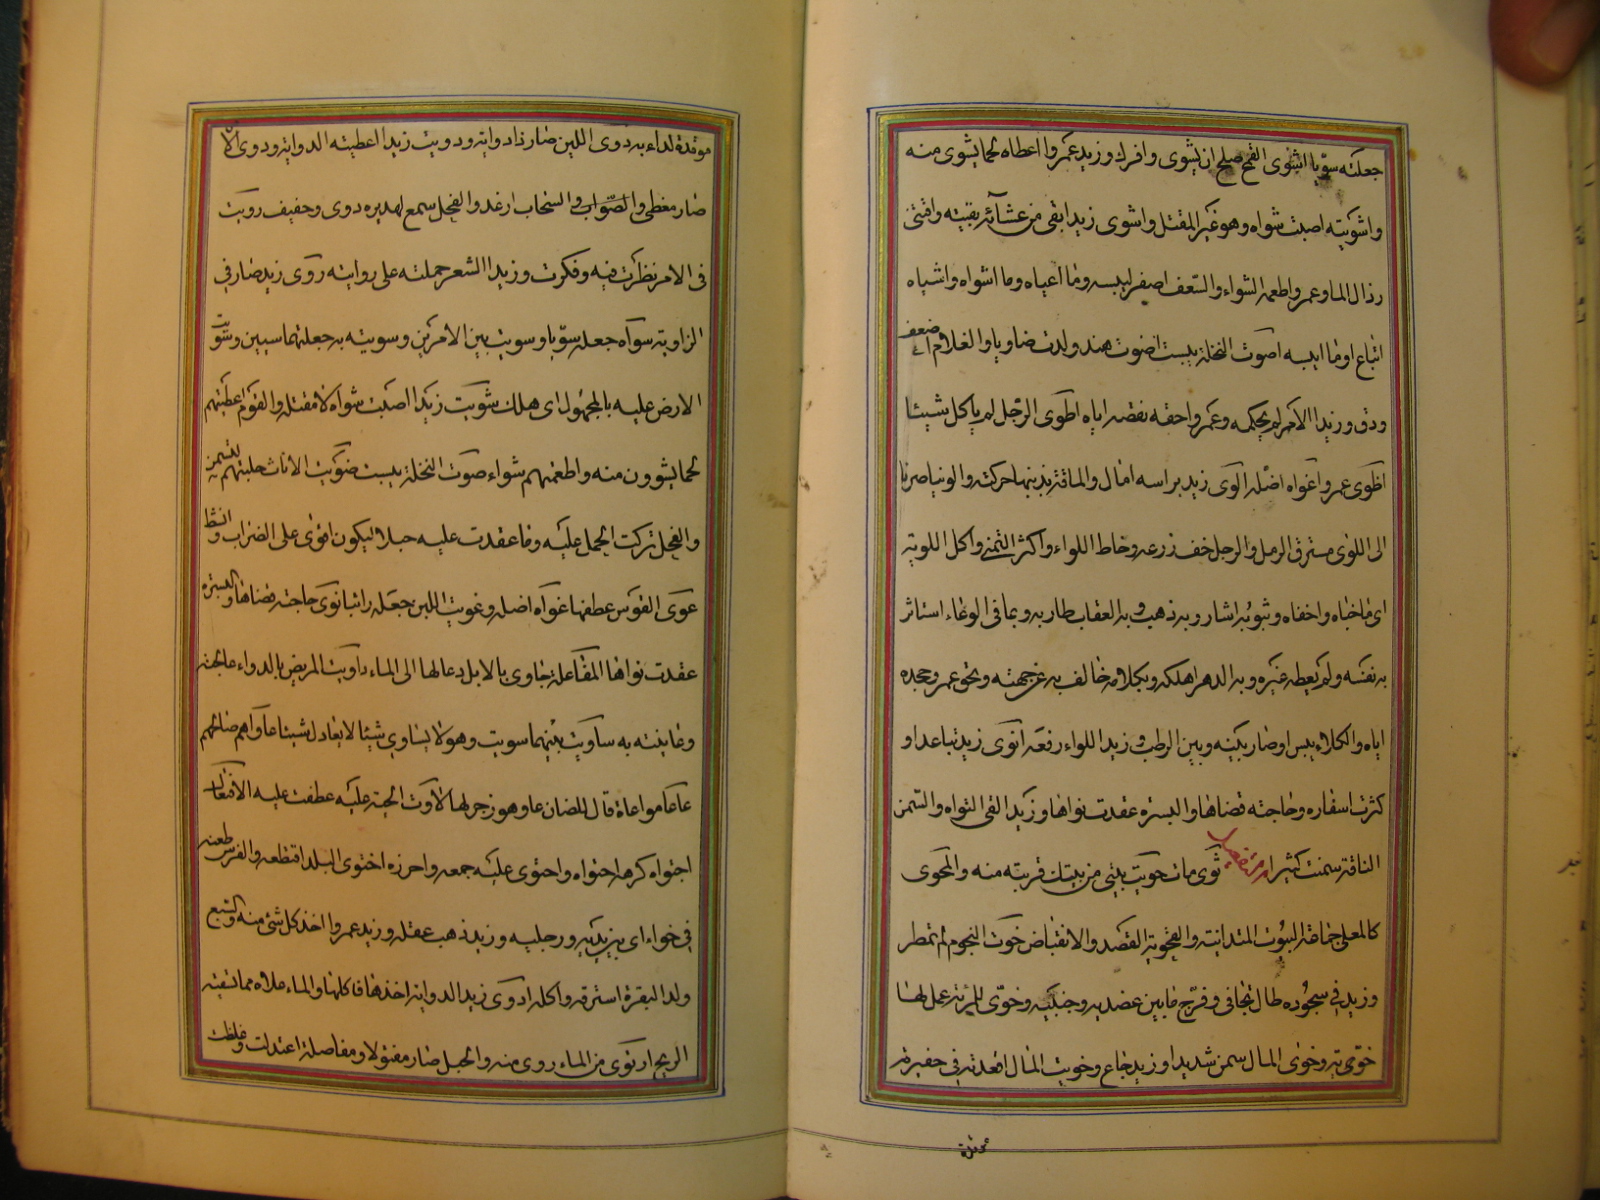 جعلته سويا اشوى القمح صلح ان يشوى وافرك وزيد عمروا اعطاه لحما يشوى منه
واشويته اصبت شواه وهو غير المقتل واشوى زيدا بقى من عشائه بقيته واقتنى
رذال المال وعمروا طعمه الشواء والسعف اصفر لليبس وما اعياه وما اشواه واشياه
اتباع او ما ايبسه اصوت النخلة يبست اضوت هند ولدت ضاويا والغلام ضعف
ودق وزيدا الامر لم يحكمه وعمروا حقه نقصه اياه اطوى الرجل لم ياكل شيئا
اظوى عمروا اغواه اضله الوى زيد براسه امال والماقة بذنبها حركته والونيا صرنا
الى اللوى مسترق الرمل والرجل خف زرعه وخاط اللواء واكثر التمنى واكل اللوية
اى ما خباه واخفاه وبثوبه اشار وبه ذهب وبه العقاب طار به وبما فى الوعاء استاثر
به نفسه ولم يعطه غيره وبه الدهر اهلكه وبكلامه خالف به عن جهته وبحق عمرو جحده
اياه والكلاء يبس او صار بينه وبين الرطب وزيدا اللواء رفعه انوى زيد تباعد او
كثرت اسفاره وحاجته قضاها والبسرة عقدت نواها وزيدا لقى النواه والسمن
الناقة سمنت كثيرا ثوى مات حويت بيتى من بيتك قربته منه والمحوى
كالمعلى جماعة البيوت المتدانية والفجوية القصد والانقباض خوت النجوم لم تمطر
وزيد فى سجوده طال تجافى وفرج ما بين عضديه وجنبيه وخوى للمرئة عمل لها
خوية وخوى المال سمن شديدا وزيد جاع وخويت المال اقعدته فى حفيرة
موقدة لداء به دوى اللبن صار ذا دواية ودويت زيدا اعطيته الدواية ودوى الاناء
صار مغطى والصواب والسحاب ارعد والفحل سمع لهديره دوى وحفيف رويت
فى الامر نظرت فيه وفكرت وزيدا الشعر حملته على روايته زوى زيد صار فى
الزاوية سواه جعله سويا وسويت بين الامرين وسويته به جعلتهما سيين وسويت
الارض عليه بالمجهول اى هلك شويت زيدا اصبت شواه لا مقتله والقوم اعطيتهم
لحما يشوون منه واطعمتهم شواء صوت النخلة يبست صويت الاناث حلبتهم لتسمن
والفحل تركت الحمل عليه وما عقدت عليه حبلا ليكون اقوى على الضراب وانشط
عوى القوس عطفها غواه اضله وغويت اللبن جعله رائبا نوى حاجته قضاها والبسرة
عقدت نواها المفاعلة جاوى بالابل دعا لها الى الماء داويت المريض بالدواء عالجته
وعاينته به ساويت بينهما سويت وهو لا يساوى شيئا لا يعادل شيئا عاواهم صائحهم
عاعا مواعاة قال للضان عا وهو زجر لها لاوت الحية عليه عطفت عليه الافتعال
اجتواه كرهه احتواه واحتوى عليه جمعه واحرزه اختوى البلد اقتطعه والفرس طعنه
فى خواء اى بين يديه ورجليه وزيد ذهب عقله وزيد عمروا اخذ كل شئ منه والسبع
ولد البقرة استرقه واكله ادوى زيد الدواية اخذها فاكلها والماء علاه مما تسفيه
الريح ارتوى من الماء روى منه والحبل صار مفتولا ومفاصله اعتدلت وغلظت
موقدة